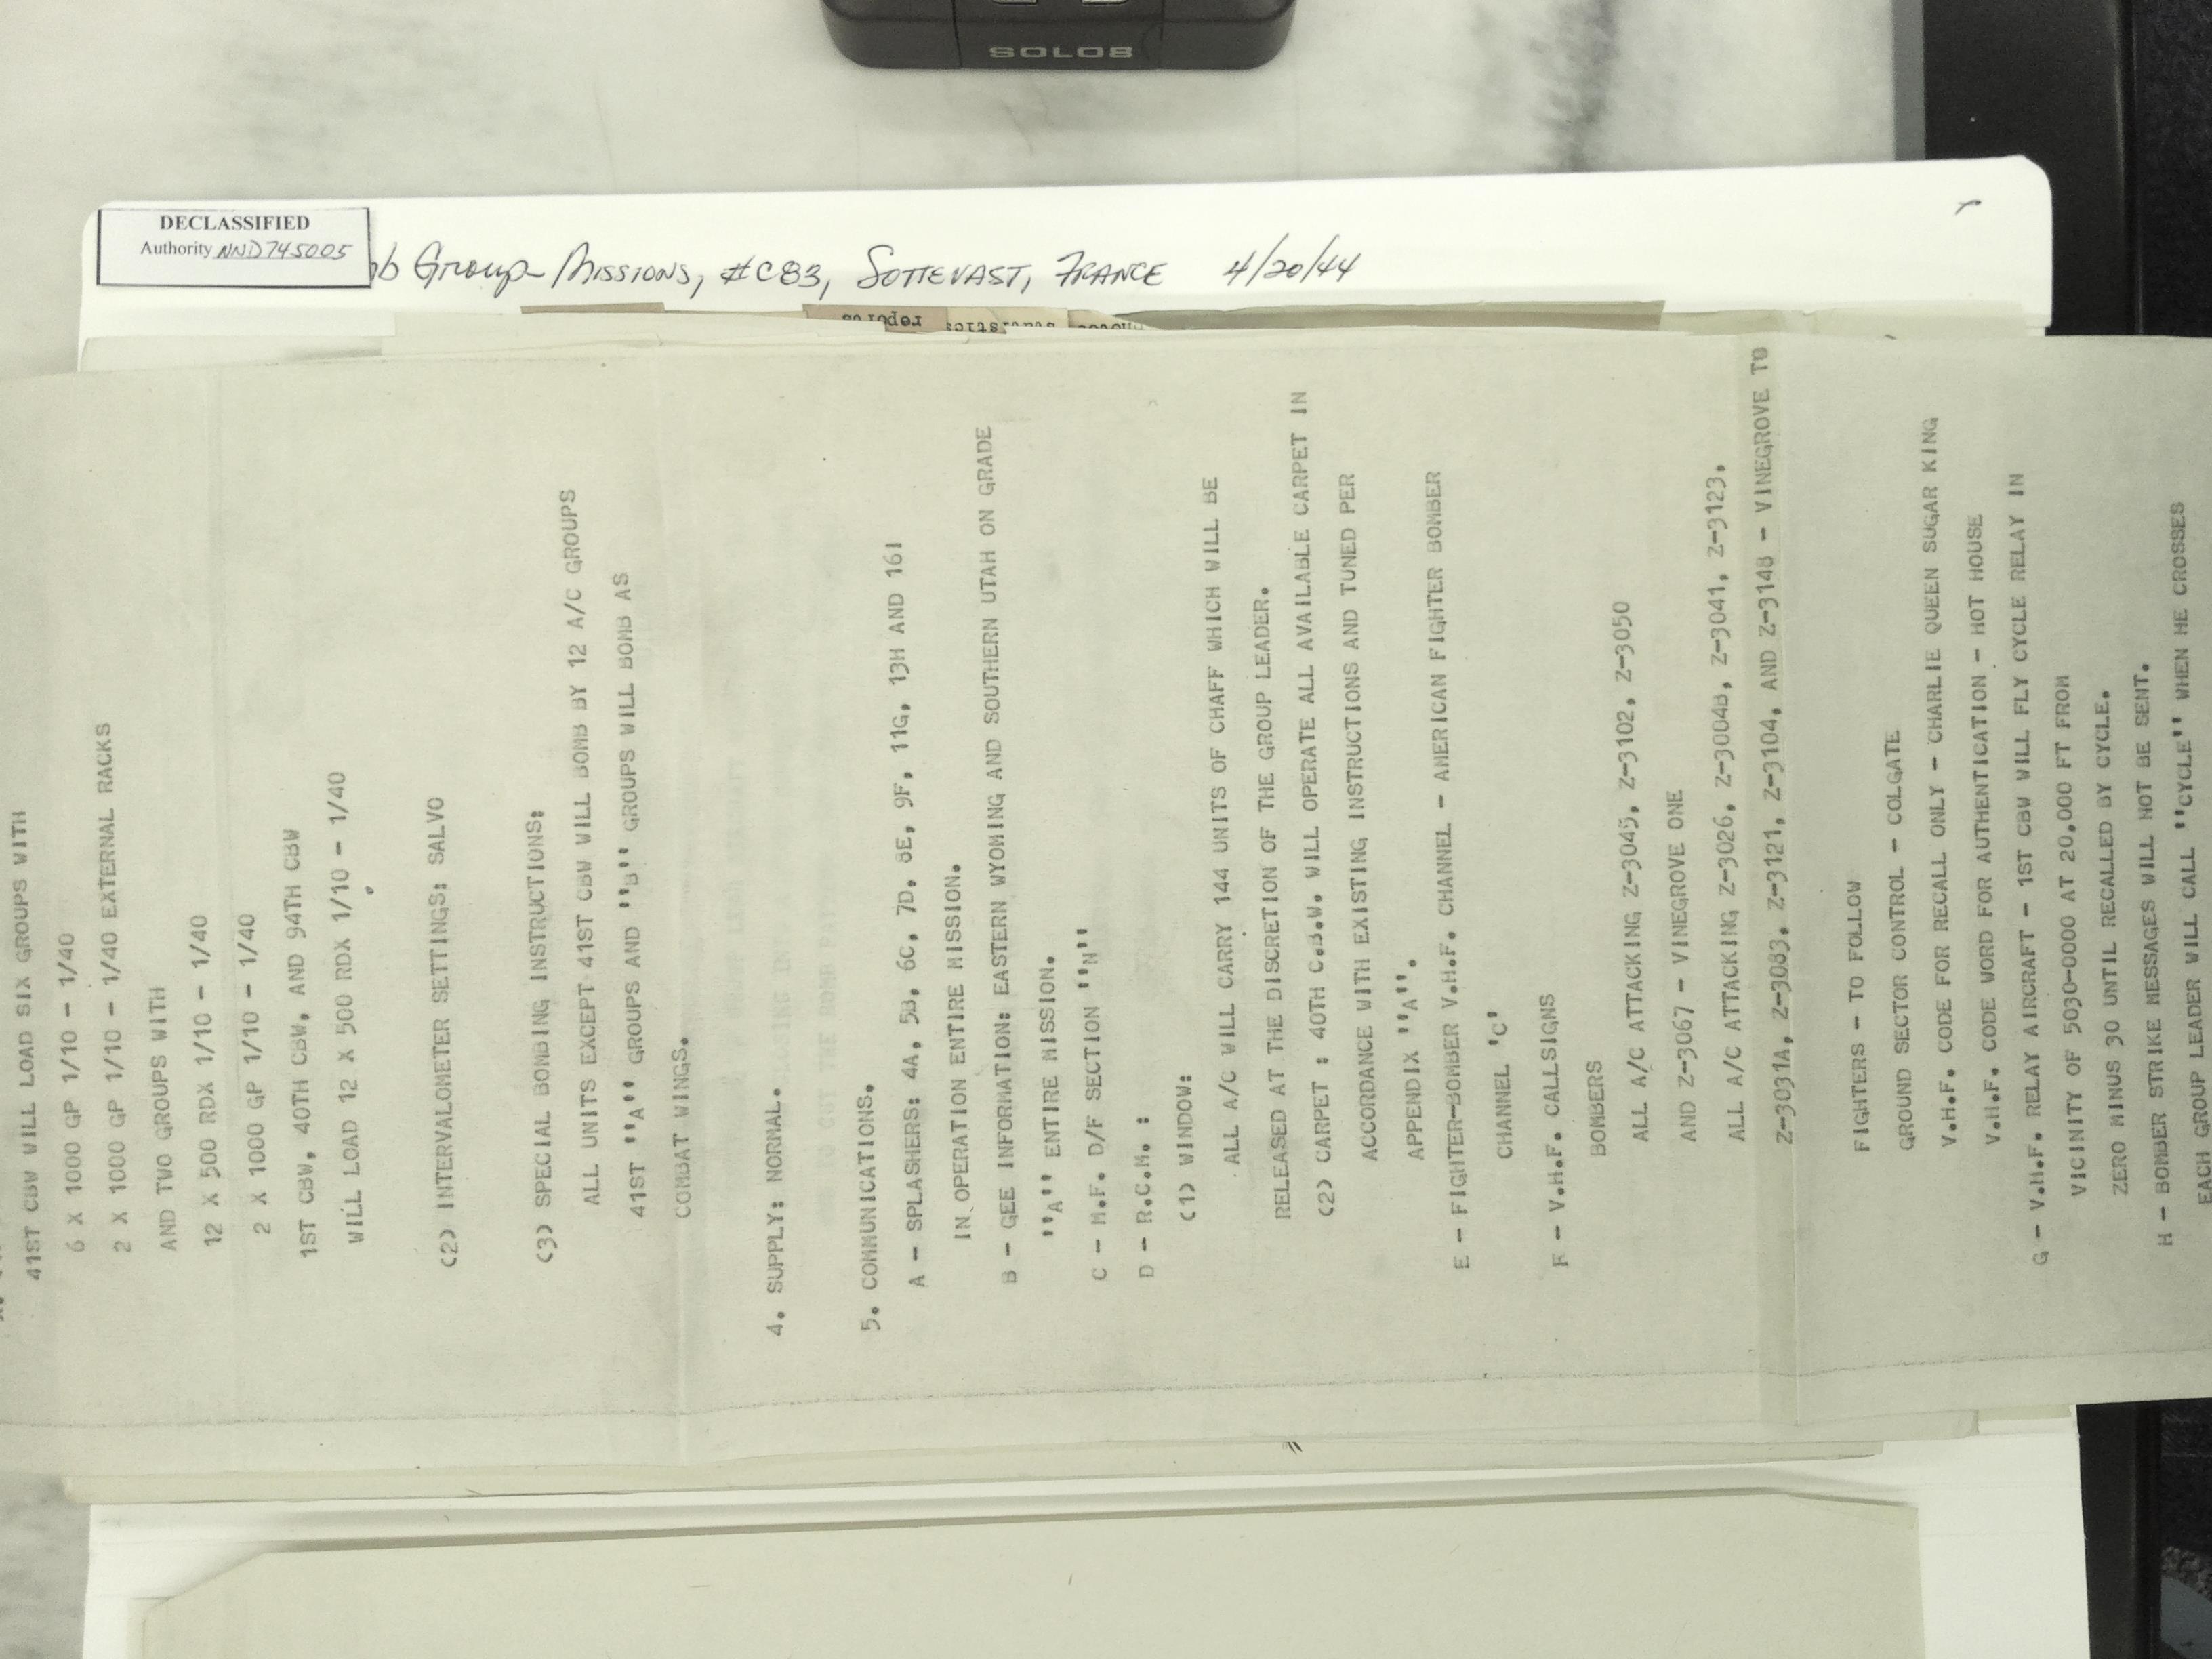 SOLO8
DECLASSIFIED
Authority NND745005
Group Missions, #C83, SOTTEVAST, FRANCE 4/20/44
reports
41ST CBW WILL LOAD SIX GROUPS WITH
6 X 1000 GP 1/10 - 1/40
2 X 1000 GP 1/10 - 1/40 EXTERNAL RACKS
AND TWO GROUPS WITH
12 X 500 RDX 1/10 - 1/40
2 X 1000 GP 1/10 - 1/40
1ST CBW, 40TH CBW, AND 94TH CBW
WILL LOAD 12 X 500 RDX 1/10 - 1/40
(2) INTERVALOMETER SETTINGS: SALVO
(3) SPECIAL BOMBING INSTRUCTIONS:
ALL UNITS EXCEPT 41ST CBW WILL BOMB BY 12 A/C GROUPS
41ST ''A'' GROUPS AND ''B'' GROUPS WILL BOMB AS
COMBAT WINGS.
4. SUPPLY: NORMAL.
5. COMMUNICATIONS.
A - SPLASHERS: 4A, 5B, 6C, 7D, 8E, 9F, 11G, 13H AND 16I
IN OPERATION ENTIRE MISSION.
B - GEE INFORMATION: EASTERN WYOMING AND SOUTHERN UTAH ON GRADE
''A'' ENTIRE MISSION.
C - M.F. D/F SECTION ''N''
D - R.C.M. :
(1) WINDOW:
ALL A/C WILL CARRY 144 UNITS OF CHAFF WHICH WILL BE
RELEASED AT THE DISCRETION OF THE GROUP LEADER.
(2) CARPET : 40TH C.B.W. WILL OPERATE ALL AVAILABLE CARPET IN
ACCORDANCE WITH EXISTING INSTRUCTIONS AND TUNED PER
APPENDIX ''A''.
E - FIGHTER-BOMBER V.H.F. CHANNEL - AMERICAN FIGHTER BOMBER
CHANNEL 'C'
F - V.H.F. CALLSIGNS
BOMBERS
ALL A/C ATTACKING Z-3045, Z-3102, Z-3050
AND Z-3067 - VINEGROVE ONE
ALL A/C ATTACKING Z-3026, Z-3004B, Z-3041, Z-3123,
Z-3031A, Z-3083, Z-3121, Z-3104, AND Z-3148 - VINEGROVE TO
FIGHTERS - TO FOLLOW
GROUND SECTOR CONTROL - COLGATE
V.H.F. CODE FOR RECALL ONLY - CHARLIE QUEEN SUGAR KING
V.H.F. CODE WORD FOR AUTHENTICATION - HOT HOUSE
G - V.H.F. RELAY AIRCRAFT - 1ST CBW WILL FLY CYCLE RELAY IN
VICINITY OF 5030-0000 AT 20,000 FT FROM
ZERO MINUS 30 UNTIL RECALLED BY CYCLE.
H - BOMBER STRIKE MESSAGES WILL NOT BE SENT.
EACH GROUP LEADER WILL CALL ''CYCLE'' WHEN HE CROSSES